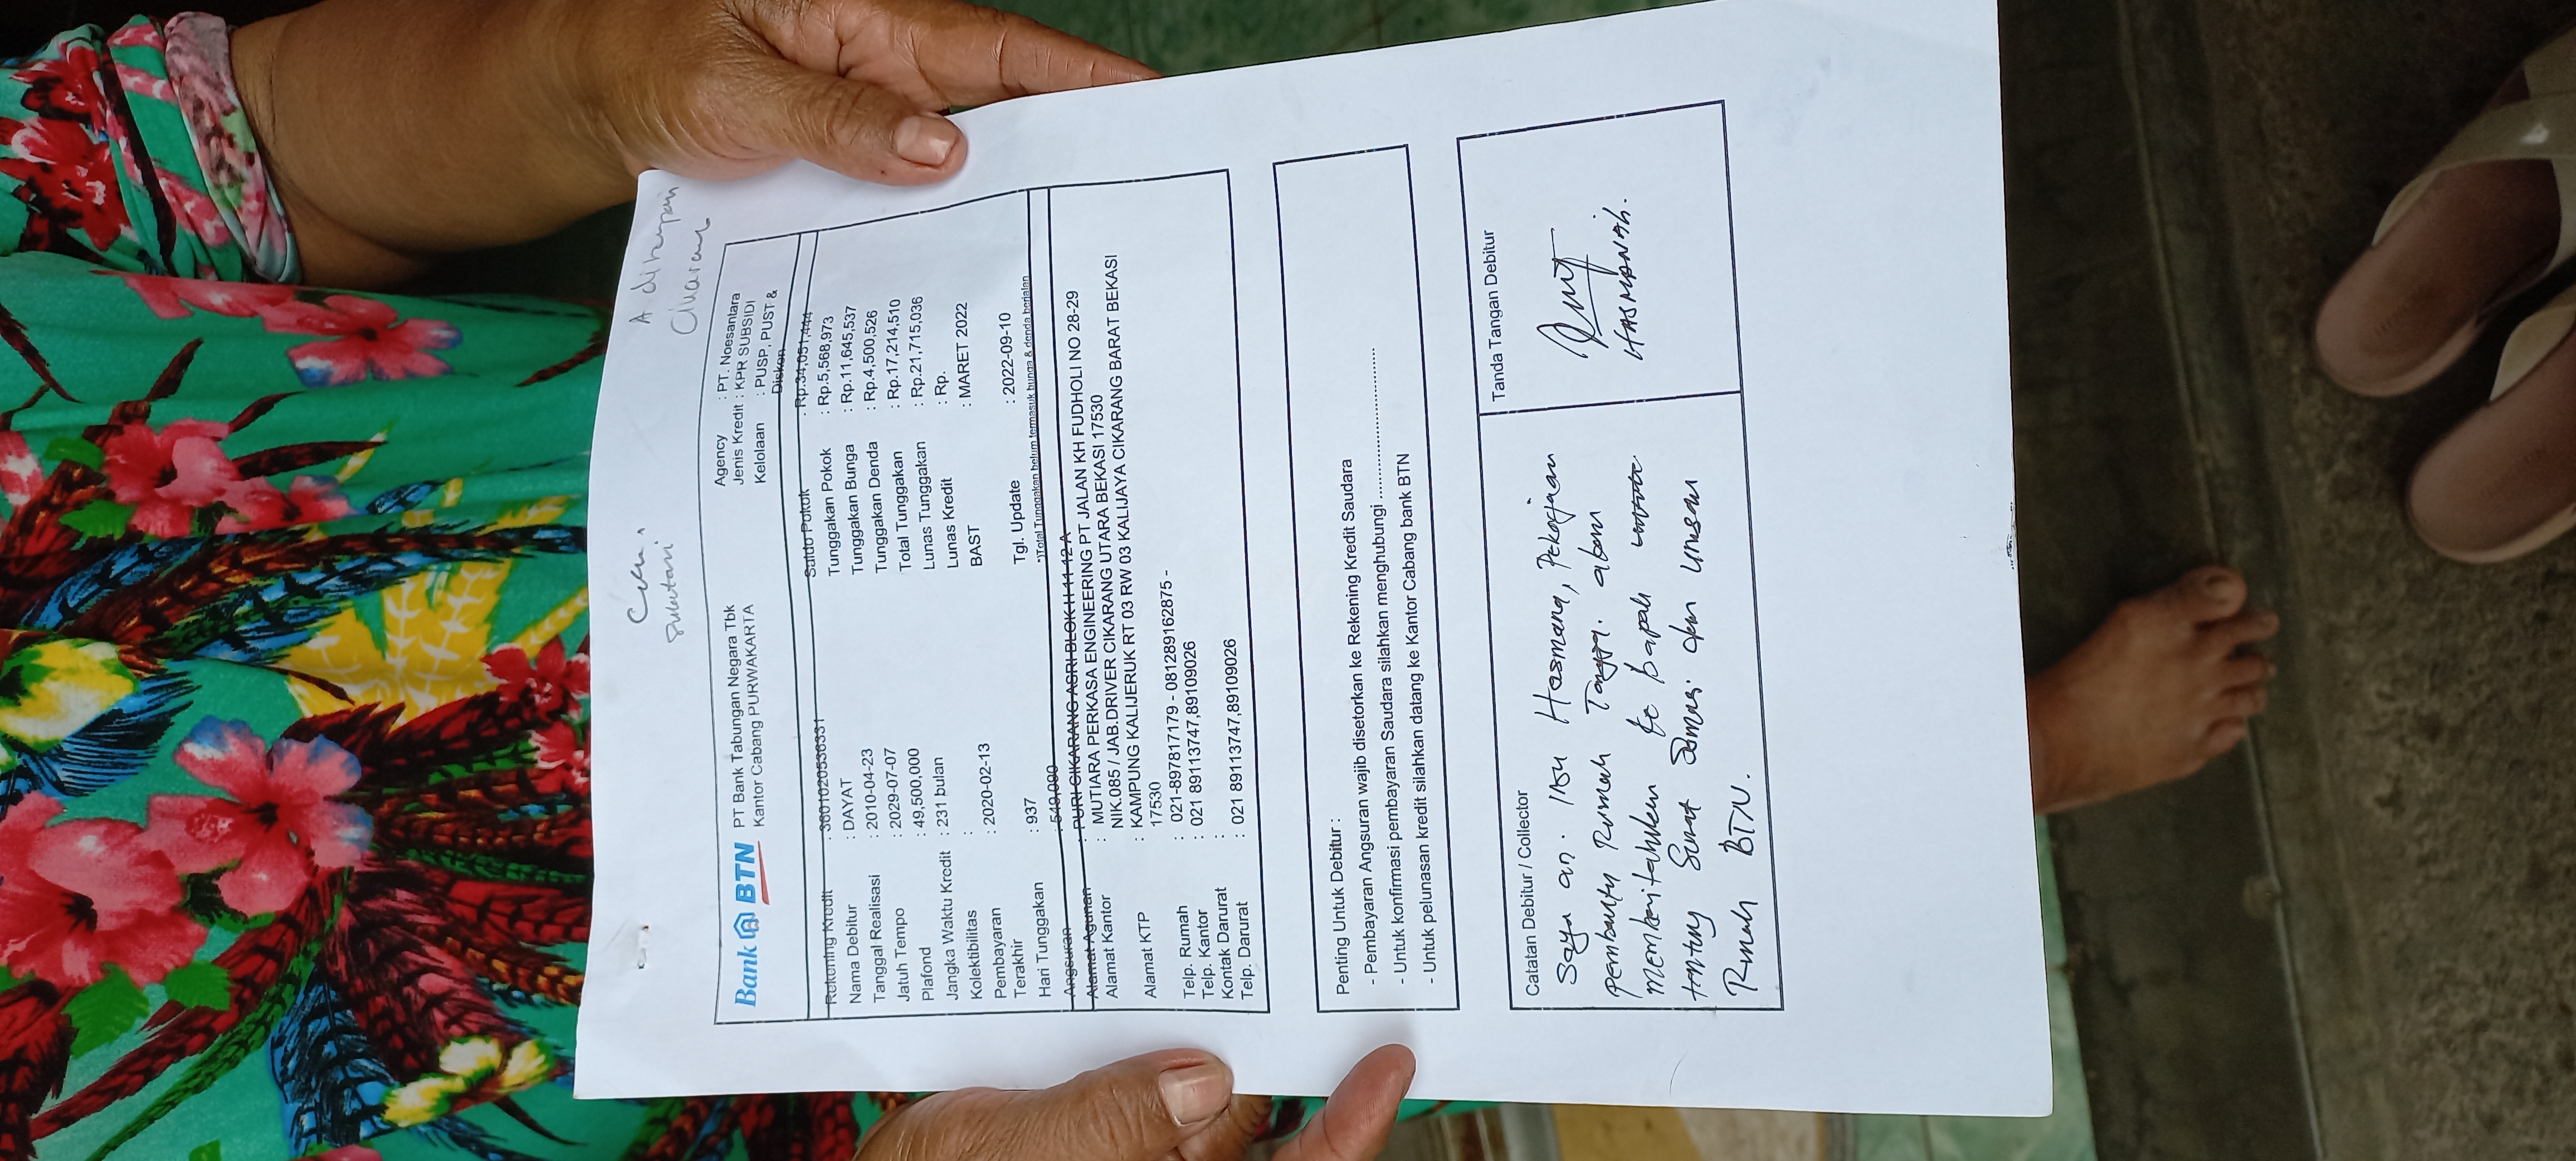 A
Cikarang
Bank BTN
PT Bank Tabungan Negara Tbk
Kantor Cabang PURWAKARTA
Agency : PT. Noesantara
Jenis Kredit : KPR SUBSIDI
Kelolaan : PUSP, PUST &
Diskon
Rekening Kredit
Saldo Pokok : Rp.34,051,444
Nama Debitur : DAYAT
Tunggakan Pokok : Rp.5,568,973
Tanggal Realisasi : 2010-04-23
Tunggakan Bunga : Rp.11,645,537
Jatuh Tempo : 2029-07-07
Tunggakan Denda : Rp.4,500,526
Plafond : 49,500,000
Total Tunggakan : Rp.17,214,510
Jangka Waktu Kredit : 231 bulan
Lunas Tunggakan : Rp.21,715,036
Kolektibilitas :
Lunas Kredit : Rp.
Pembayaran Terakhir : 2020-02-13
BAST : MARET 2022
Hari Tunggakan : 937
Tgl. Update : 2022-09-10
Angsuran : 549,090
*)Total Tunggakan belum termasuk bunga & denda berjalan
Alamat Agunan : PURI CIKARANG ASRI BLOK H 11 12 A
Alamat Kantor : MUTIARA PERKASA ENGINEERING PT JALAN KH FUDHOLI NO 28-29
NIK.085 / JAB.DRIVER CIKARANG UTARA BEKASI 17530
Alamat KTP : KAMPUNG KALIJERUK RT 03 RW 03 KALIJAYA CIKARANG BARAT BEKASI
17530
Telp. Rumah : 021-897817179 - 081289162875 -
Telp. Kantor : 021 89113747,89109026
Kontak Darurat :
Telp. Darurat : 021 89113747,89109026
Penting Untuk Debitur :
- Pembayaran Angsuran wajib disetorkan ke Rekening Kredit Saudara
- Untuk konfirmasi pembayaran Saudara silahkan menghubungi ..............................
- Untuk pelunasan kredit silahkan datang ke Kantor Cabang bank BTN
Catatan Debitur / Collector
Saya an. Ibu Hasmana, Pekerjaan
Pembantu Rumah Tangga. akan
memberitahukan ke bapak
tentang Surat Somasi dan urusan
Rumah BTN.
Tanda Tangan Debitur
HASMANAH.